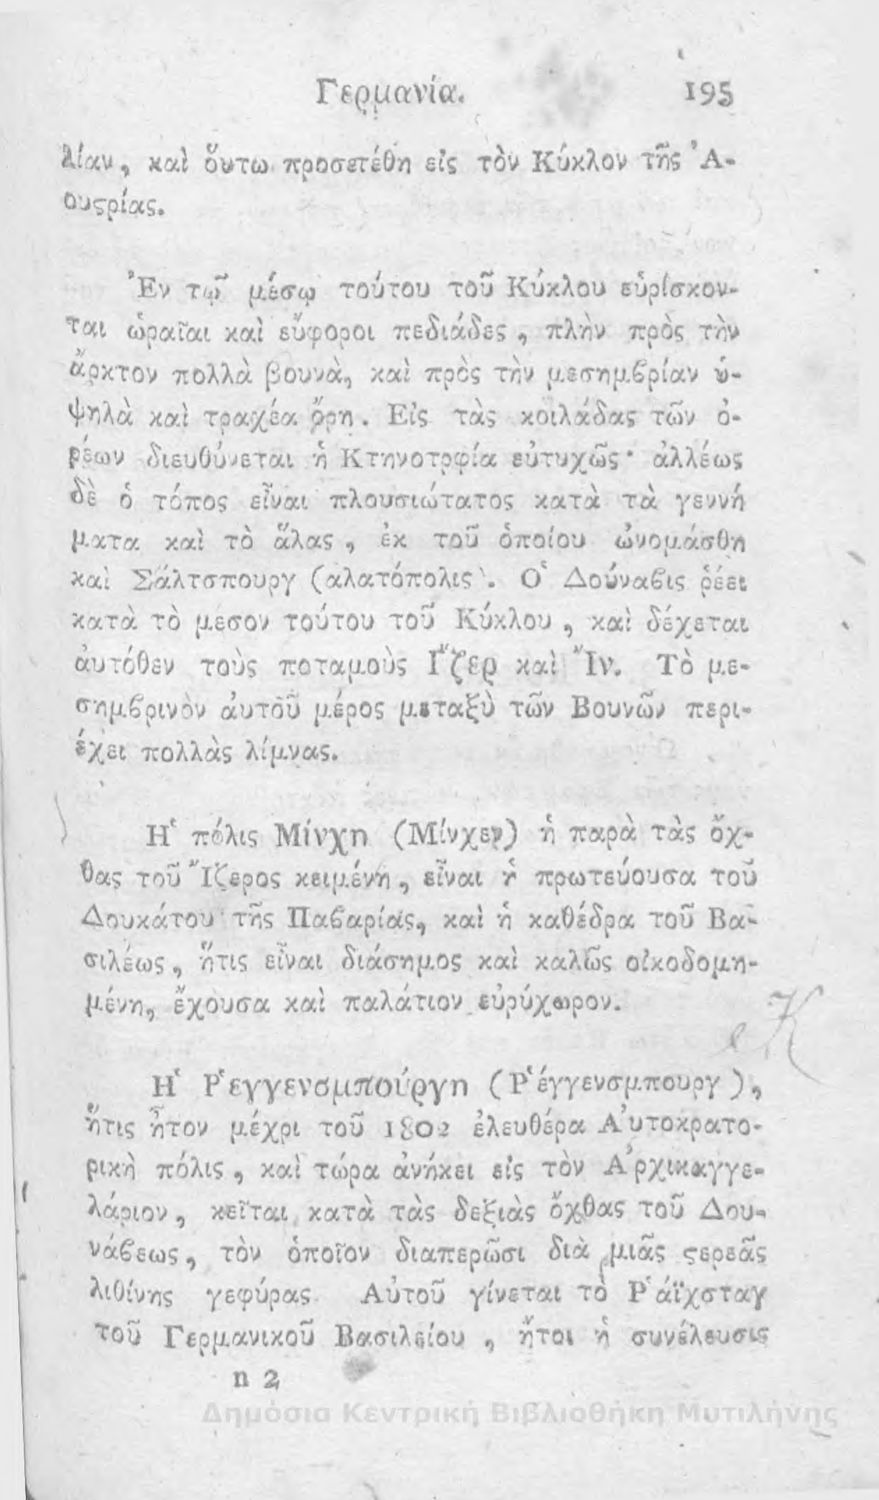 Γερμανία. 195
λίαν, καὶ ὅυτω προσετέθη εἰς τὸν Κύκλον τῆς Ἀ-
ουςρίας.
Ἐν τῷ μέσῳ τούτου τοῦ Κύκλου εὑρίσκον-
ται ὡραῖαι καὶ εὔφοροι πεδιάδες, πλὴν πρὸς τὴν
ἄρκτον πολλὰ βουνὰ, καὶ πρὸς τὴν μεσημβρίαν ὑ-
ψηλὰ καὶ τραχέα ὄρη. Εἰς τὰς κοιλάδας τῶν ὀ-
ρέων διευθύνεται ἡ Κτηνοτρφία εὐτυχῶς· ἀλλέως
δὲ ὁ τόπος εἶναι πλουσιώτατος κατὰ τὰ γεννή
ματα καὶ τὸ ἅλας, ἐκ τοῦ ὁποίου ὠνομάσθη
καὶ Σάλτσπουργ (αλατόπολις). Ὁ Δούναβις ῥέει
κατὰ τὸ μεσον τούτου τοῦ Κύκλου, καὶ δέχεται
ἀυτόθεν τοὺς ποταμοὺς Ἴζερ καὶ Ἴν. Τὸ με-
σημβρινὸν ἀυτοῦ μέρος μεταξὺ τῶν Βουνῶν περι-
έχει πολλὰς λίμνας.
Ἡ πόλις Μίνχη (Μίνχεν) ἡ παρὰ τὰς ὄχ-
θας τοῦ Ἴζερος κειμένη, εἶναι ἡ πρωτεύουσα τοῦ
Δουκάτου τῆς Παβαρίας, καὶ ἡ καθέδρα τοῦ Βα-
σιλέως, ἥτις εἶναι διάσημος καὶ καλῶς οἰκοδομη-
μένη, ἔχουσα καὶ παλάτιον εὐρύχωρον.
Ἡ Ῥεγγενσμπούργη (Ῥέγγενσμπουργ),
ἥτις ἦτον μέχρι τοῦ 1802 ἐλευθέρα Ἀυτοκρατο-
ρικὴ πόλις, καὶ τώρα ἀνήκει εἰς τὸν Ἀρχικαγγε-
λάριον, κεῖται κατὰ τὰς δεξιὰς ὄχθας τοῦ Δου-
νάβεως, τὸν ὁποῖον διαπερῶσι διὰ μιᾶς ςερεᾶς
λιθίνης γεφύρας. Αὐτοῦ γίνεται τὸ Ῥάϊχσταγ
τοῦ Γερμανικοῦ Βασιλείου, ἤτοι ἡ συνέλευσις
n 2
Δημόσια Κεντρική Βιβλιοθήκη Μυτιλήνης